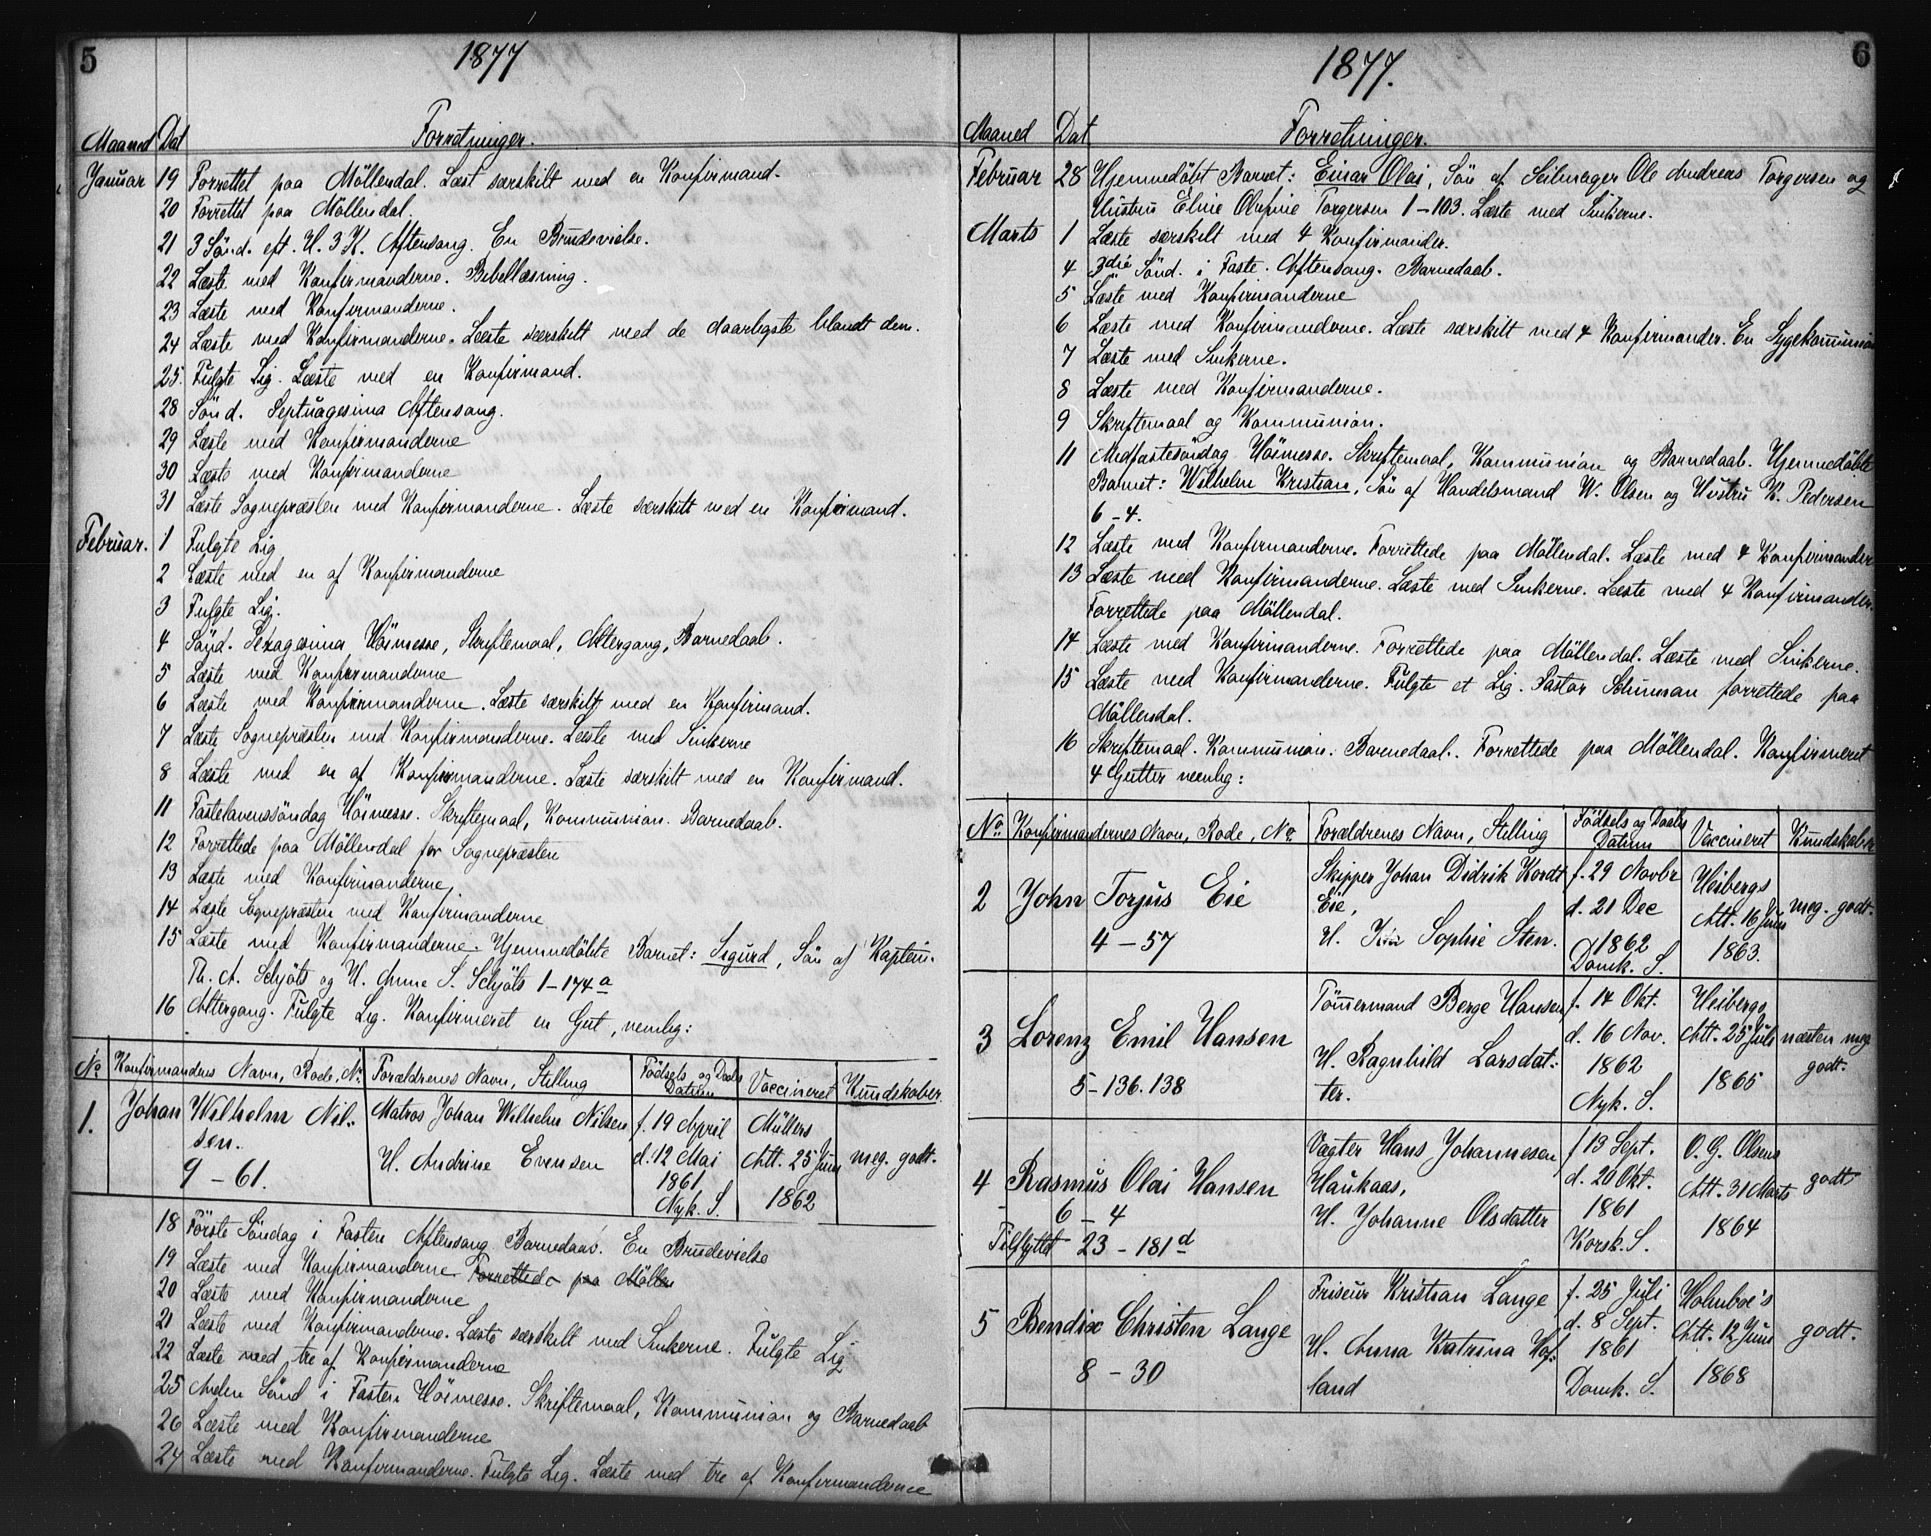 5
1877
Maaned Dat Forretninger.
Januar 19 Forrettet paa Möllendal. Læst særskilt med en Konfirmand.
20 Forrettet paa Möllendal.
21 3 Sönd. eft. H. 3 K. Aftensang. En Brudevielse.
22 Læste med Konfirmanderne. Bibellæsning.
23 Læste med Konfirmanderne.
24 Læste med Konfirmanderne. Læste særskilt med de daarligste blandt dem.
25. Fulgte Lig. Læste med en Konfirmand.
28 Sönd. Septuagesima Aftensang.
29 Læste med Konfirmanderne
30 Læste med Konfirmanderne
31 Læste Sognepræsten med Konfirmanderne. Læste særskilt med en Konfirmand.
Februar. 1 Fulgte Lig
2 Læste med en af Konfirmanderne
3 Fulgte Lig.
4 Sönd. Sexagesima Höimesse, Skriftemaal, Altergang, Barnedaab.
5 Læste med Konfirmanderne
6 Læste med Konfirmanderne. Læste særskilt med en Konfirmand.
7 Læste Sognepræsten med Konfirmanderne. Læste med Sinkerne
8 Læste med en af Konfirmanderne. Læste særskilt med en Konfirmand.
11 Fastelavenssöndag Höimesse. Skriftemaal, Kommunion. Barnedaab.
12 Forrettede paa Möllendal for Sognepræsten
13 Læste med Konfirmanderne.
14 Læste Sognepræsten med Konfirmanderne
15 Læste med Konfirmanderne. Hjemmedöbte Barnet: Sigurd, Sön af Kaptein
Th. A. Schjöts og H. Anne S. Schjöts 1-174a
16 Altergang. Fulgte Lig. Konfirmeret en Gut, nemlig:
No Konfirmandens Navn, Rode, No. Forældrenes Navn, Stilling Födsels og Daabs Datum Vaccineret Kundskaber.
1. Johan Wilhelm Nilsen. Matros Johan Wilhelm Nilsen f. 19 April Müllers
H. Andrine Evensen d. 12 Mai Att. 25 Juni meg. godt.
9-61. 1861 1862
Nyk. S.
18 Förste Söndag i Fasten Aftensang Barnedaab. En Brudevielse
19 Læste med Konfirmanderne. Forrettede paa Möllen
20 Læste med Konfirmanderne
21 Læste med Konfirmanderne. Læste særskilt med Sinkerne. Fulgte Lig
22 Læste med tre af Konfirmanderne
25 Anden Sönd i Fasten Höimesse. Skriftemaal, Kommunion og Barnedaab
26 Læste med Konfirmanderne
27 Læste med Konfirmanderne. Fulgte Lig. Læste med tre af Konfirmanderne
6
1877.
Maaned Dat Forretninger.
Februar 28 Hjemmedöbt Barnet: Einar Olai, Sön af Seilmager Ole Andreas Torgersen og
Hustru Eline Olufine Torgersen 1-103. Læste med Sinkerne.
Marts 1 Læste særskilt med 4 Konfirmander.
4 3die Sönd. i Faste. Aftensang. Barnedaab.
5 Læste med Konfirmanderne
6 Læste med Konfirmanderne. Læste særskilt med 4 Konfirmander. En Sygekommunion
7 Læste med Sinkerne.
8 Læste med Konfirmanderne.
9 Skriftemaal og Kommunion.
11 Midfastesöndag Höimesse. Skriftemaal, Kommunion og Barnedaab. Hjemmedöbte
Barnet: Wilhelm Kristian, Sön af Handelsmand W. Olsen og Hustru K. Pedersen
6-4.
12 Læste med Konfirmanderne. Forrettede paa Möllendal. Læste med 4 Konfirmander
13 Læste med Konfirmanderne. Læste med Sinkerne. Læste med 4 Konfirmander.
Forrettede paa Möllendal.
14 Læste med Konfirmanderne. Forrettede paa Möllendal. Læste med Sinkerne.
15 Læste med Konfirmanderne. Fulgte et Lig. Pastor Schuman forrettede paa
Möllendal.
16 Skriftemaal. Kommunion. Barnedaab. Forrettede paa Möllendal. Konfirmeret
4 Gutter nemlig:
No Konfirmandernes Navn, Rode, No. Forældrenes Navn, Stilling Födsels og Daabs Datum Vaccineret Kundskaber
2 John Torjus Eie Skipper Johan Didrik Kordt Eie, f. 29 Novbr Heibergs
4-57 H. Sophie Sten. d. 21 Dec Att. 16 Juni meg. godt.
1862 1863.
Domk. S.
3 Lorenz Emil Hansen Tömmermand Berge Hansen f. 14 Okt. Heibergs
H. Ragnhild Larsdatter. d. 16 Nov. Att. 25 Juli næsten meg
5-136.138 1862 1865 godt.
Nyk. S.
4 Rasmus Olai Hansen Vægter Hans Johannesen Haukaas, f 13 Sept. O. G. Olsens
6-4 H. Johanne Olsdatter d. 20 Okt. Att. 31 Marts godt
Tilflyttet 23-181d 1861 1864
Korsk. S.
5 Bendix Christen Lange Friseur Kristian Lange f. 25 Juli Holmboe's
H. Anna Katrina Hofland d. 8 Sept. Att. 12 Juni godt.
8-30 1861 1868
Domk. S.